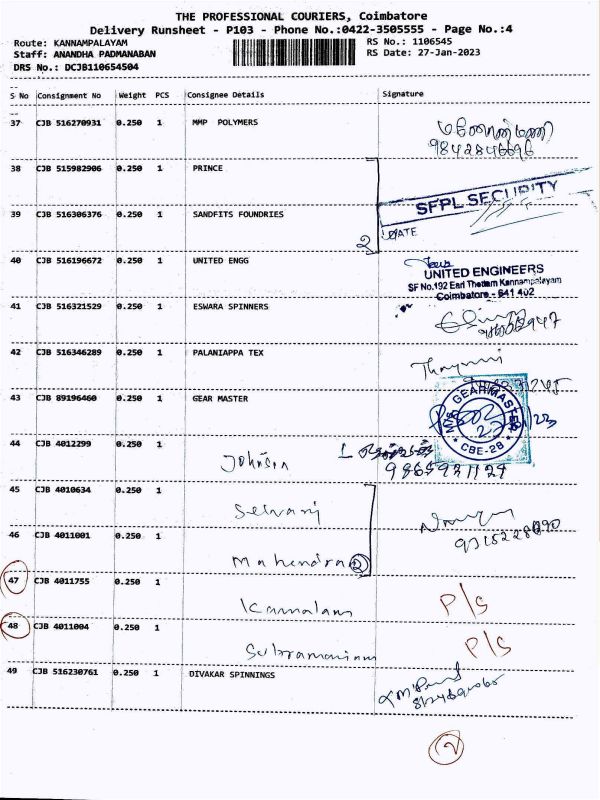 THE PROFESSIONAL COURIERS, Coimbatore
Delivery Runsheet - P103 - Phone No.:0422-3505555 - Page No.:4
Route: KANNAMPALAYAM RS No.: 1106545
Staff: ANANDHA PADMANABAN RS Date: 27-Jan-2023
DRS No.: DCJB110654504
S No Consignment No Weight PCS Consignee Details Signature
37 CJB 516270931 0.250 1 MMP POLYMERS
9842846696
38 CJB 515982906 0.250 1 PRINCE
SFPL SECURITY
39 CJB 516306376 0.250 1 SANDFITS FOUNDRIES
DATE
2
40 CJB 516196672 0.250 1 UNITED ENGG
UNITED ENGINEERS
SF No.192 Earl Thottam Kannampalayam
Coimbatore - 641 402
41 CJB 516321529 0.250 1 ESWARA SPINNERS
42 CJB 516346289 0.250 1 PALANIAPPA TEX
43 CJB 89196460 0.250 1 GEAR MASTER
M/S GEARMASTER
* CBE-28 *
44 CJB 4012299 0.250 1 Johnson
9865931129
45 CJB 4010634 0.250 1 Selvaraj
46 CJB 4011001 0.250 1 Mahendra 2
47 CJB 4011755 0.250 1 Kamalam P/S
48 CJB 4011004 0.250 1 Subramaniam P/S
49 CJB 516230761 0.250 1 DIVAKAR SPINNINGS
2